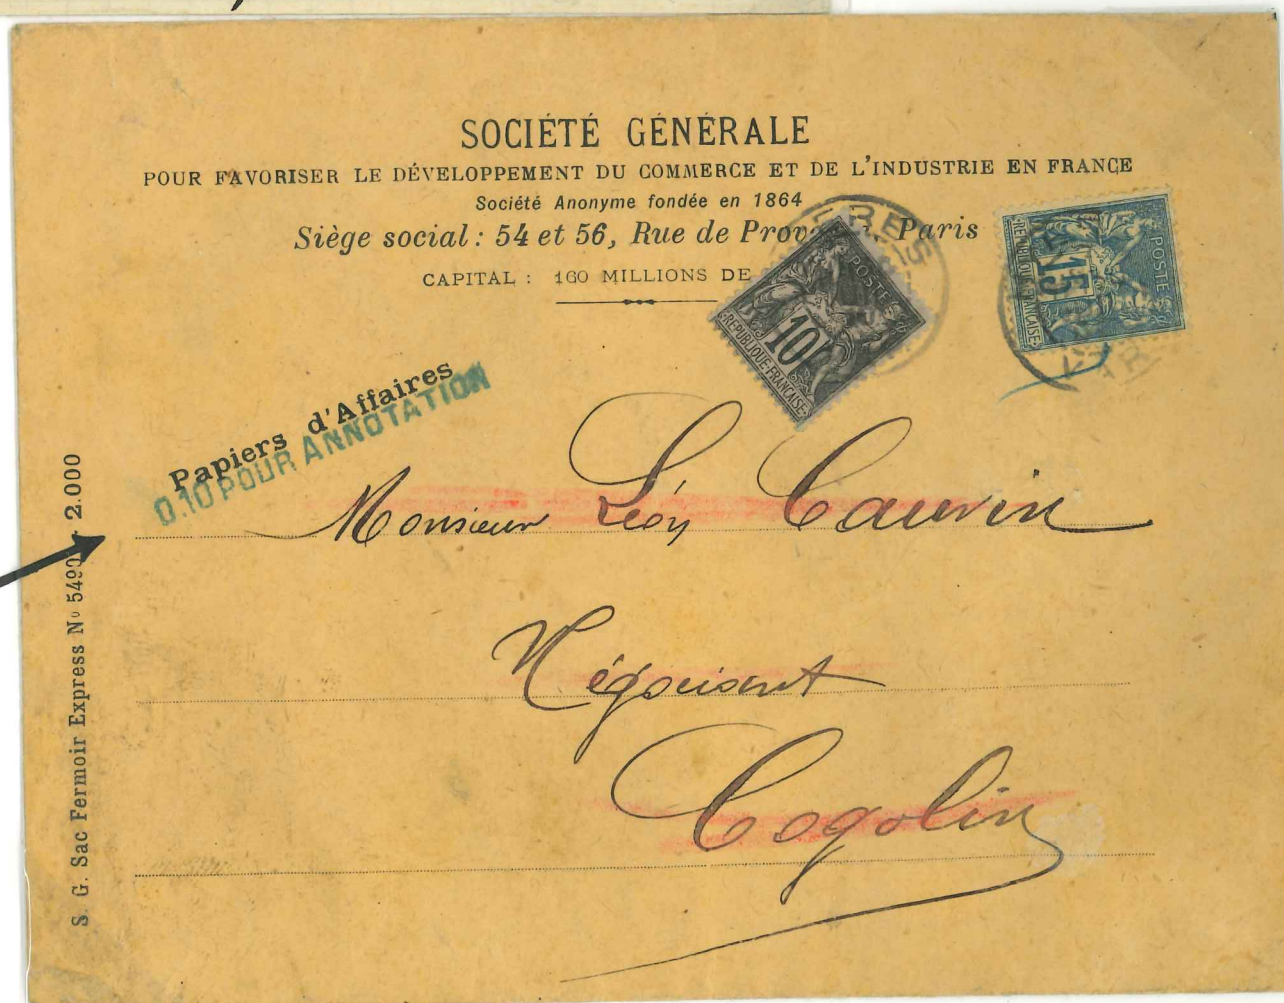 SOCIÉTÉ GÉNÉRALE
POUR FAVORISER LE DÉVELOPPEMENT DU COMMERCE ET DE L'INDUSTRIE EN FRANCE
Société Anonyme fondée en 1864
Siège social : 54 et 56, Rue de Paris
CAPITAL : 160 MILLIONS DE
POSTES
10
REPUBLIQUE FRANÇAISE
POSTES
15
REPUBLIQUE FRANÇAISE
Papiers d'Affaires
0.10 POUR ANNOTATION
Monsieur Léon Cauvin
Négociant
Cogolin
S. G. Sac Fermoir Express No 2.000